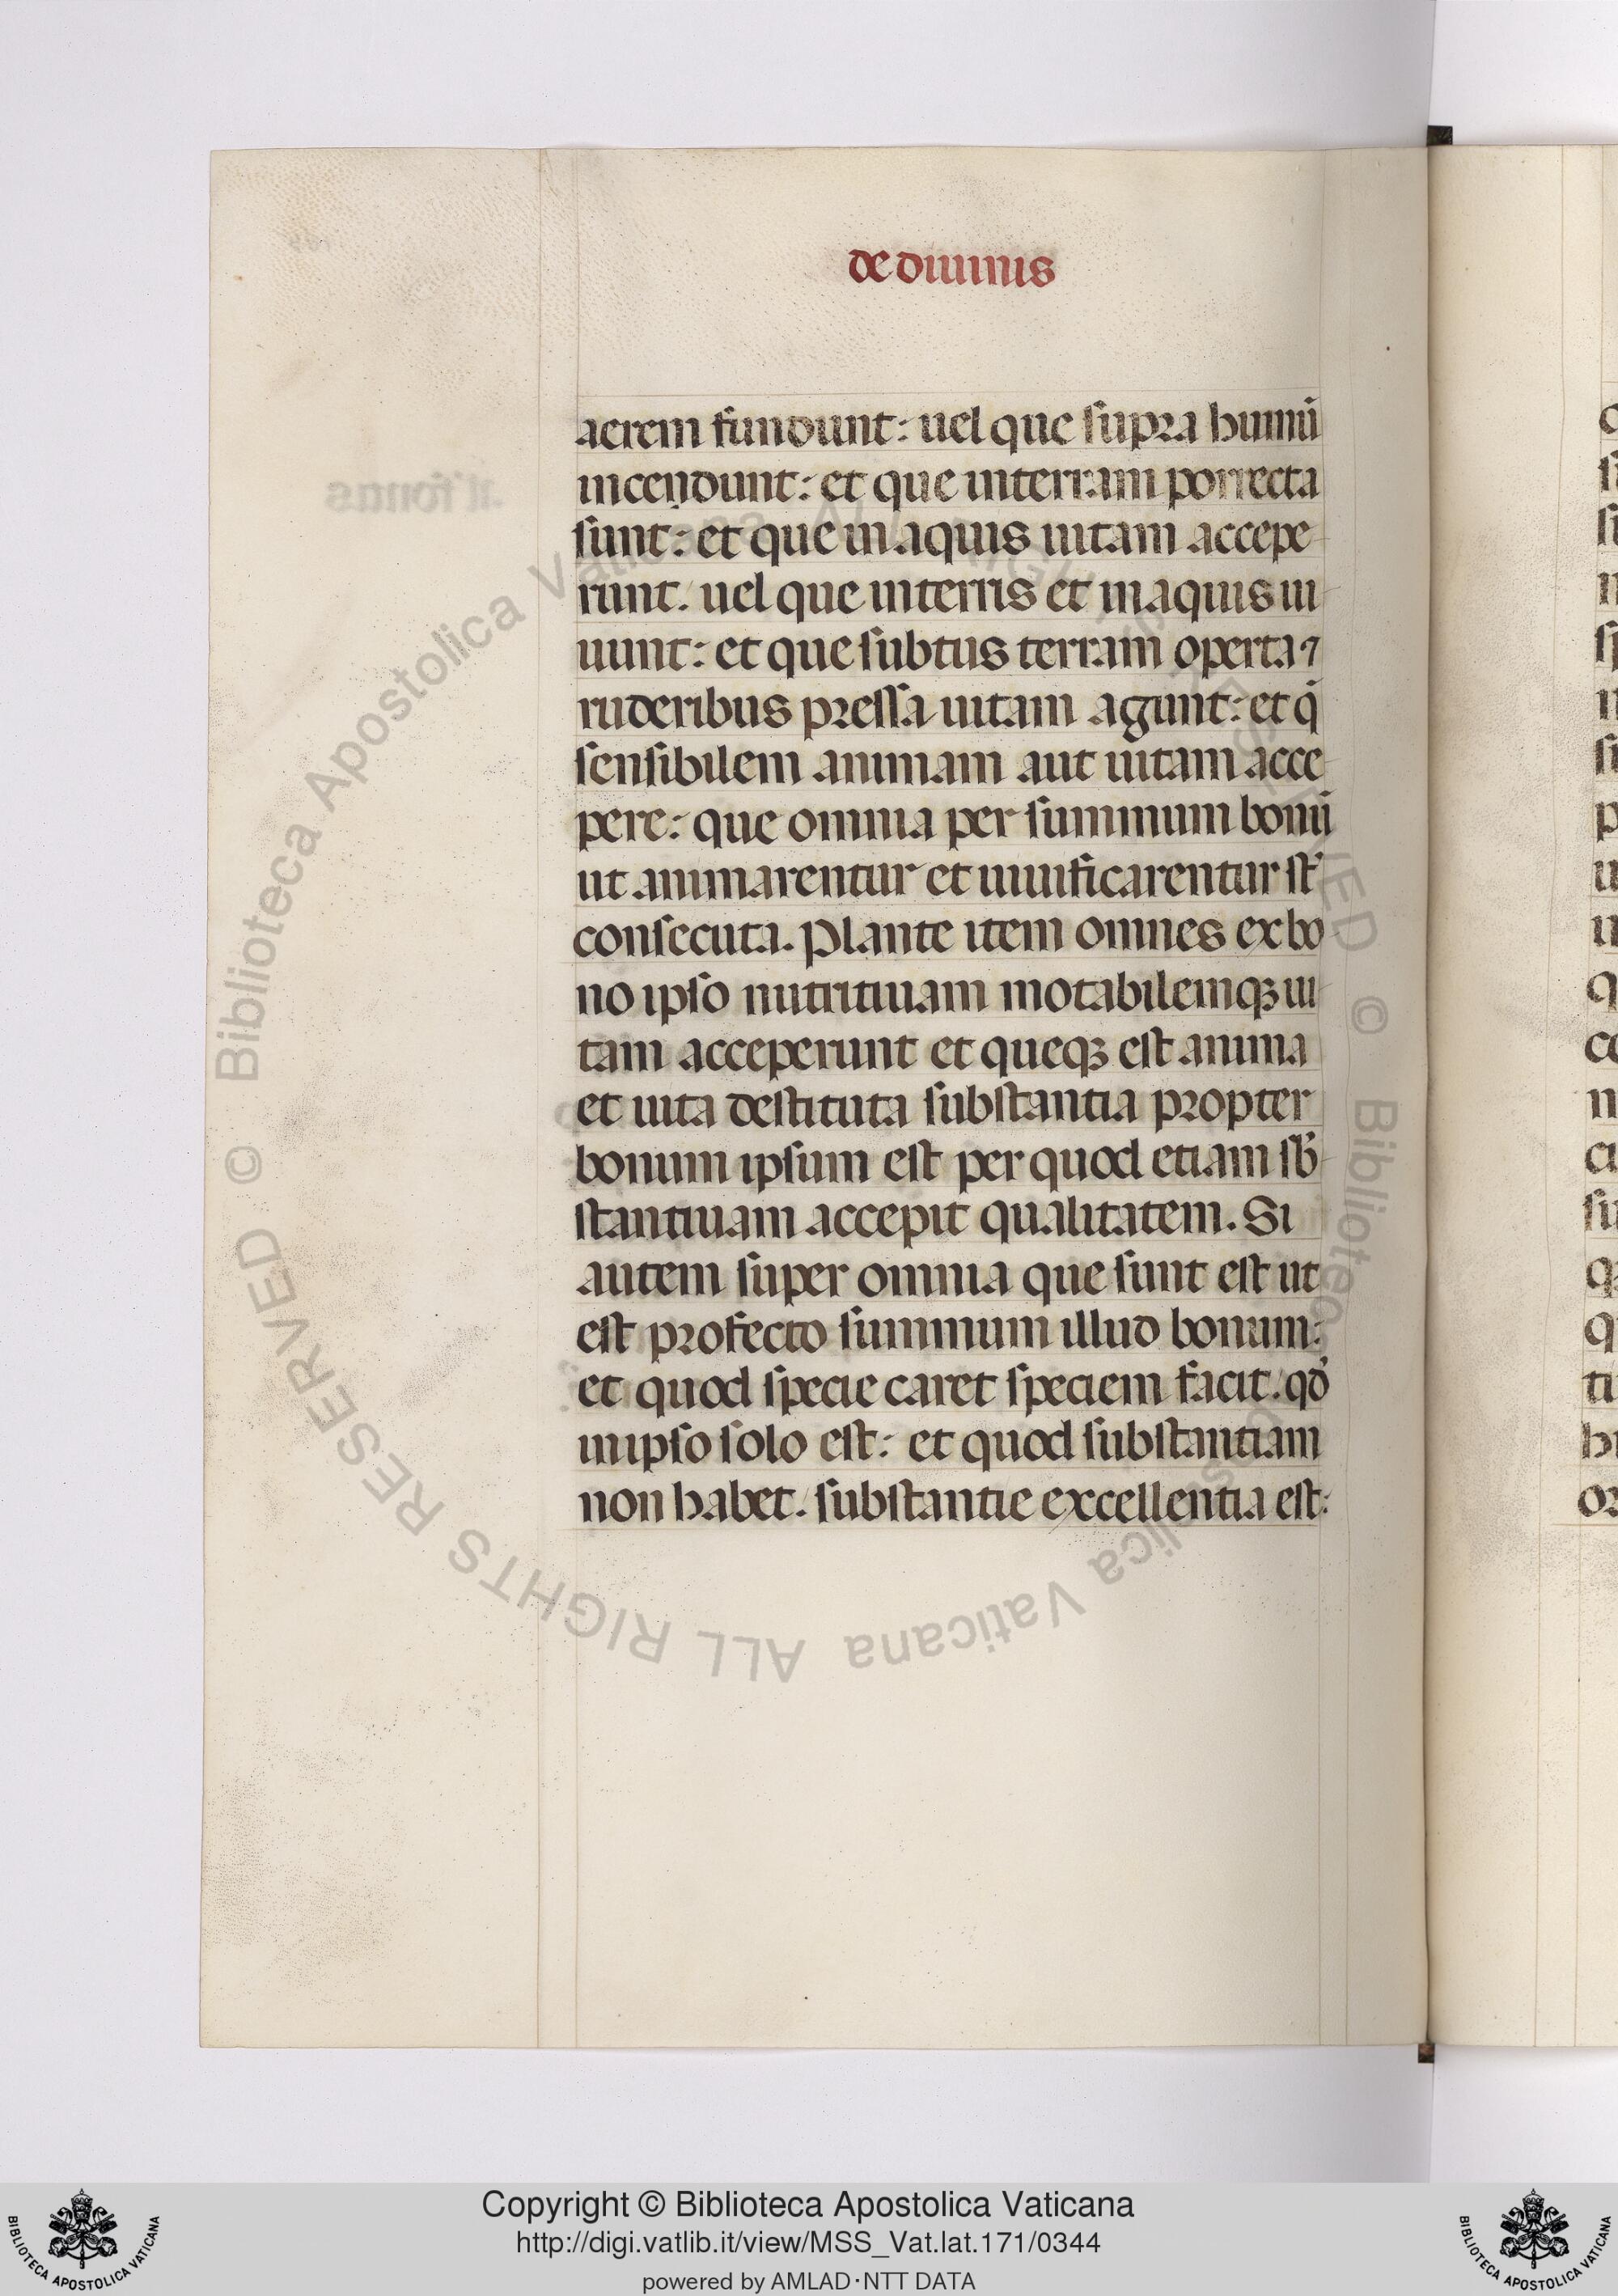 de diuinis
aerem fundunt: uel que supra humū
incendunt: et que interram porrecta
sunt: et que in aquis uitam accepe
runt. uel que interris et in aquis ui
uunt: et que subtus terram operta ⁊
ruderibus pressa uitam agunt: et q̄
sensibilem animam aut uitam acce
pere: que omnia per summum bonū
ut animarentur et uiuificarentur st̄
consecuta. Plante item omnes ex bo
no ipso nutritiuam motabilemqꝫ ui
tam acceperunt et queqꝫ est anima
et uita destituta substantia propter
bonum ipsum est per quod etiam sb̄
stantiuam accepit qualitatem. Si
autem super omnia que sunt est ut
est profecto summum illud bonum:
et quod specie caret speciem facit. qd̄
inipso solo est: et quod substantiam
non habet. substantie excellentia est:
© Biblioteca Apostolica Vaticana ALL RIGHTS RESERVED © Biblioteca Apostolica Vaticana ALL RIGHTS RESERVED
Copyright © Biblioteca Apostolica Vaticana
http://digi.vatlib.it/view/MSS_Vat.lat.171/0344
powered by AMLAD·NTT DATA
BIBLIOTECA APOSTOLICA VATICANA
BIBLIOTECA APOSTOLICA VATICANA